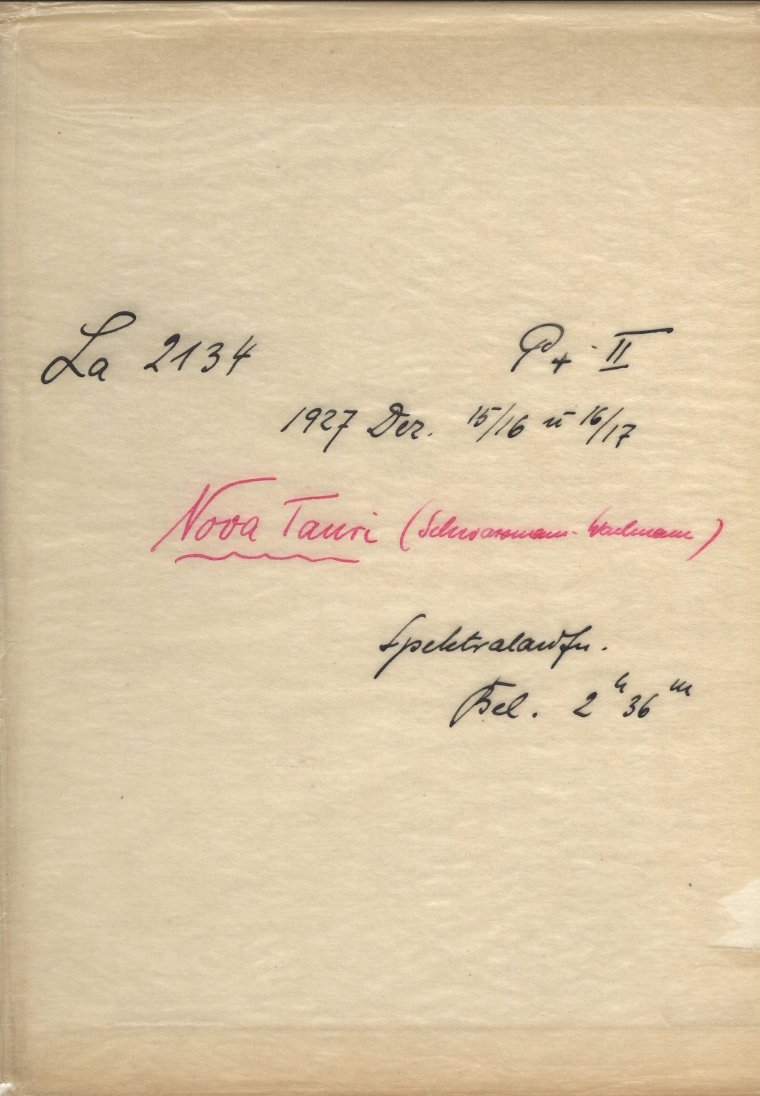 La 2134 P+ II
1927 Dez. 15/16 u 16/17
Nova Tauri (Schwassmann-Wachmann)
Spektralaufn.
Bel. 2h 36m